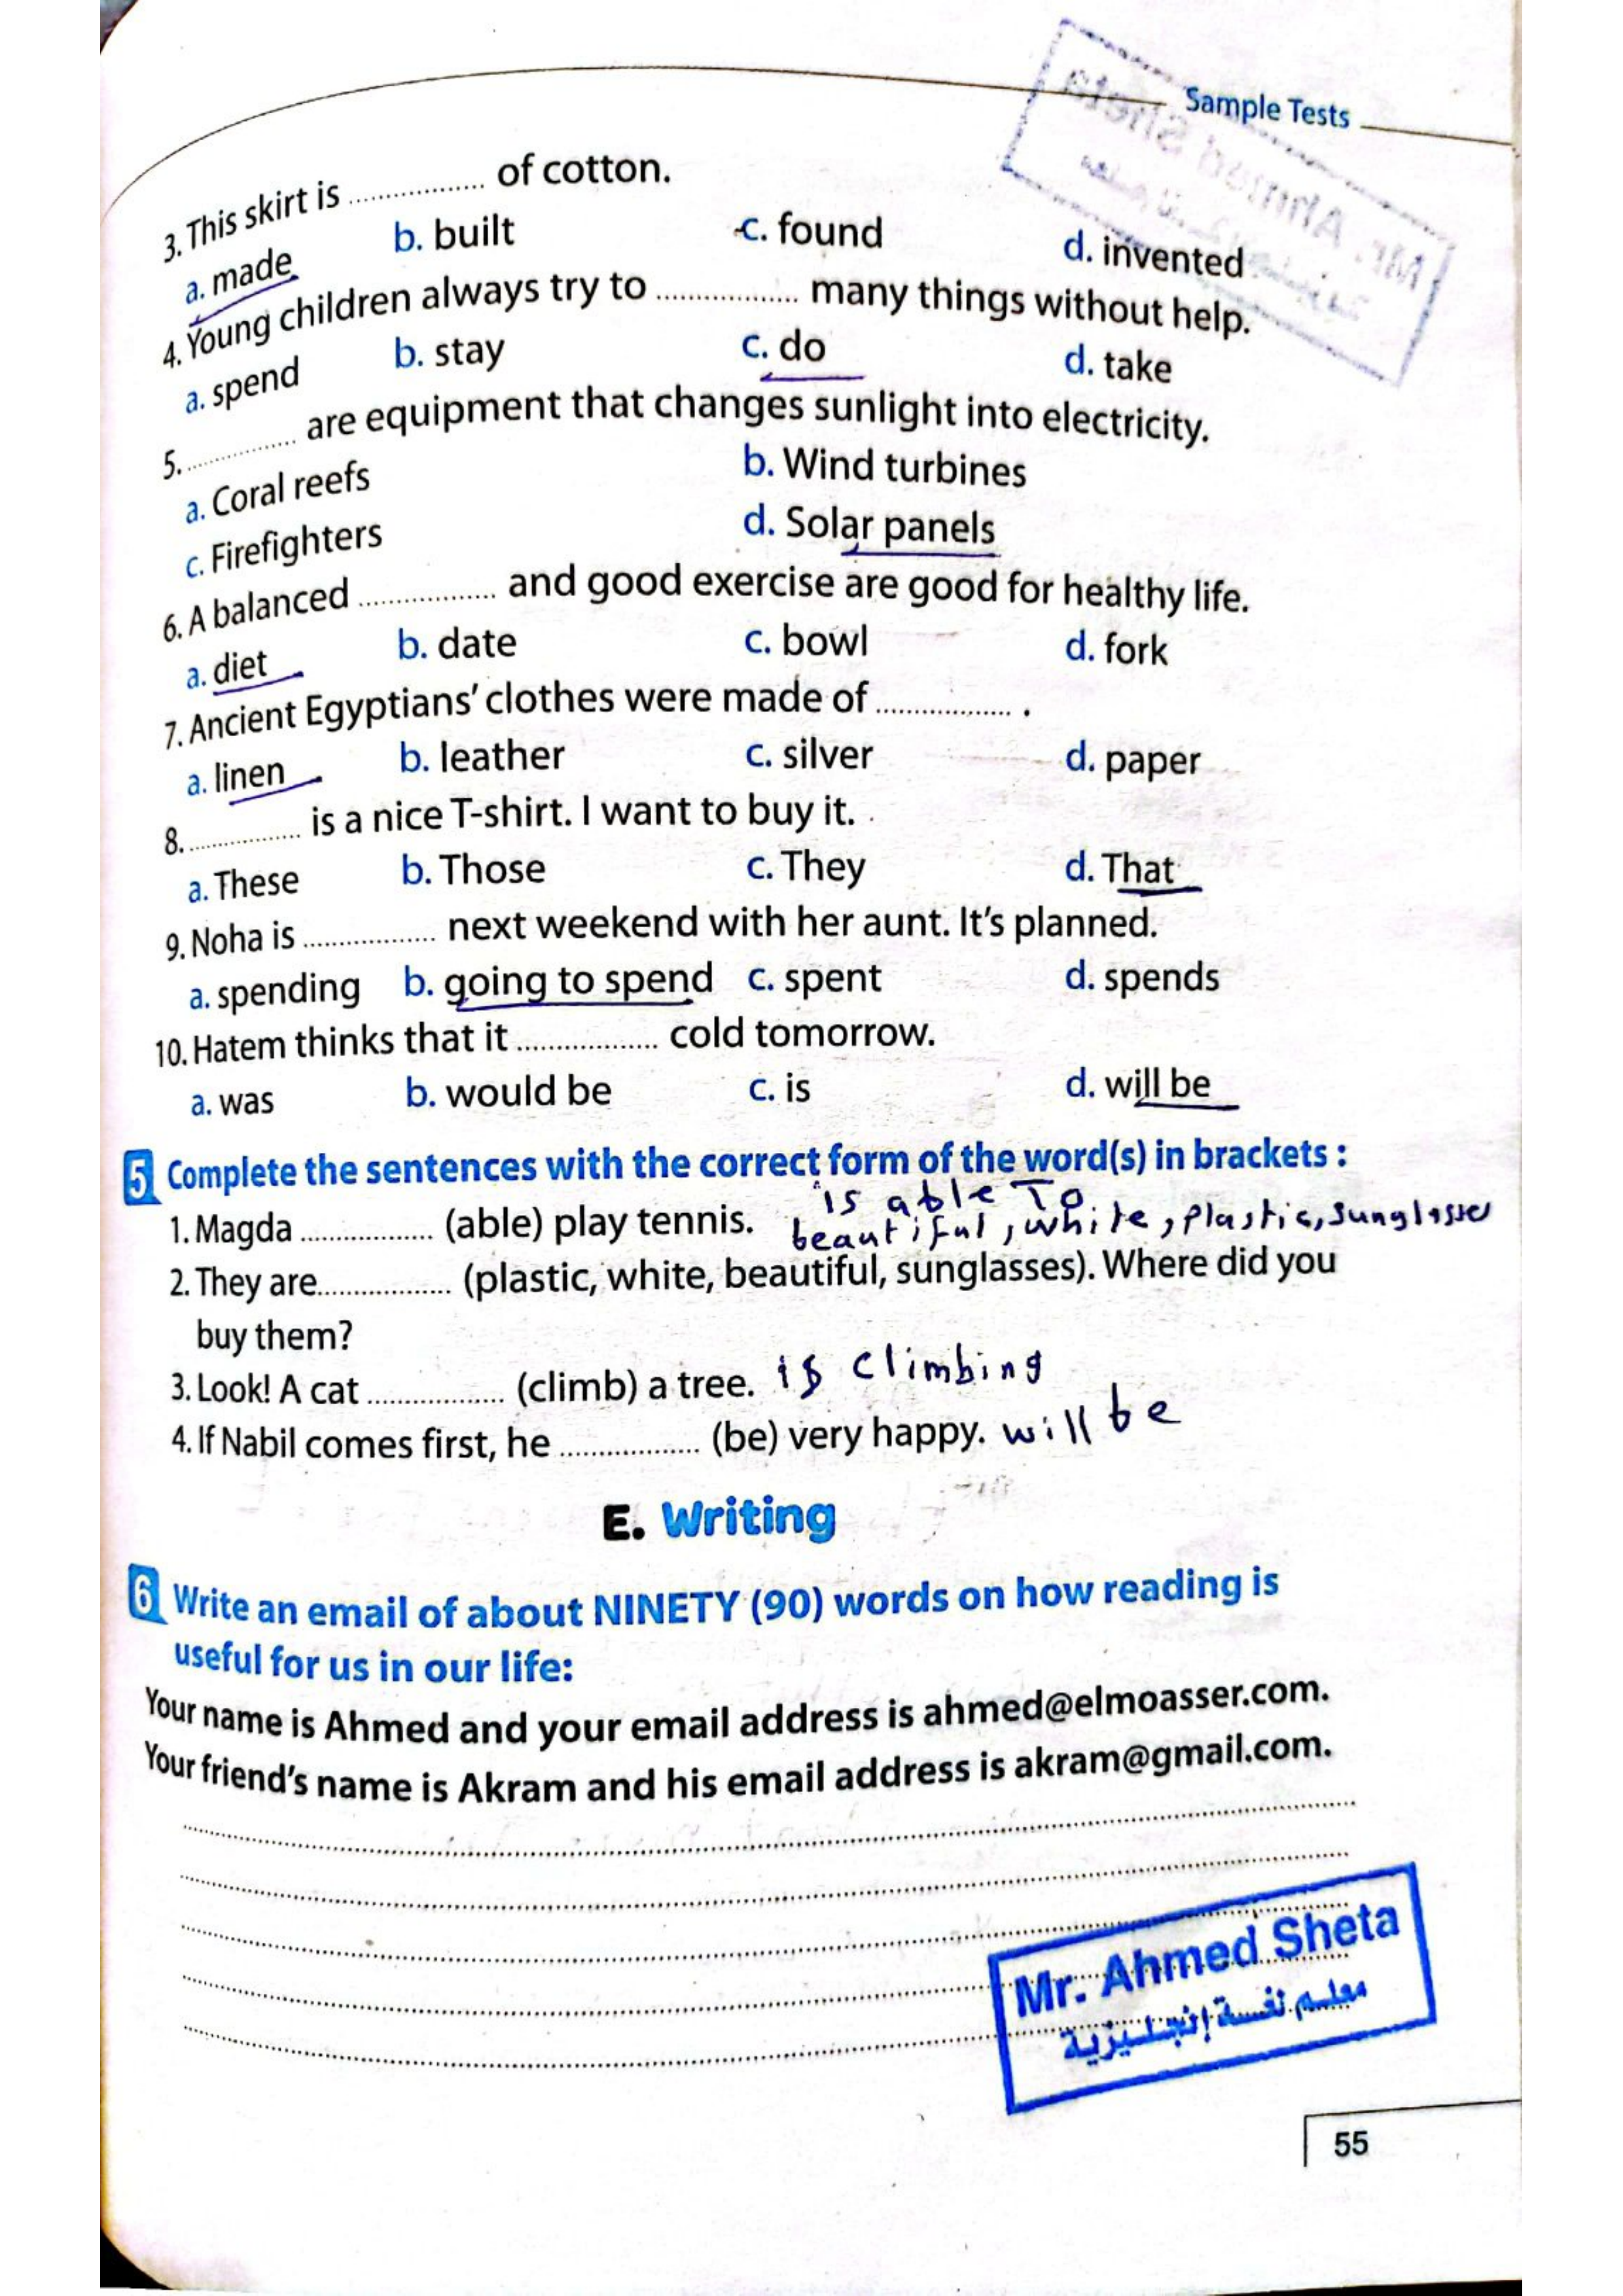 Sample Tests
3. This skirt is ................ of cotton.
a. made b. built c. found d. invented
4. Young children always try to ................ many things without help.
a. spend b. stay c. do d. take
5. ................ are equipment that changes sunlight into electricity.
a. Coral reefs b. Wind turbines
c. Firefighters d. Solar panels
6. A balanced ................ and good exercise are good for healthy life.
a. diet b. date c. bowl d. fork
7. Ancient Egyptians' clothes were made of ................ .
a. linen b. leather c. silver d. paper
8. ................ is a nice T-shirt. I want to buy it.
a. These b. Those c. They d. That
9. Noha is ................ next weekend with her aunt. It's planned.
a. spending b. going to spend c. spent d. spends
10. Hatem thinks that it ................ cold tomorrow.
a. was b. would be c. is d. will be
5 Complete the sentences with the correct form of the word(s) in brackets :
is able To
1. Magda ................ (able) play tennis.
beautiful, white, plastic, sunglasses
2. They are ................ (plastic, white, beautiful, sunglasses). Where did you
buy them?
3. Look! A cat ................ (climb) a tree. is climbing
4. If Nabil comes first, he ................ (be) very happy. will be
E. Writing
6 Write an email of about NINETY (90) words on how reading is
useful for us in our life:
Your name is Ahmed and your email address is ahmed@elmoasser.com.
Your friend's name is Akram and his email address is akram@gmail.com.
Mr. Ahmed Sheta
معلم لغة إنجليزية
55